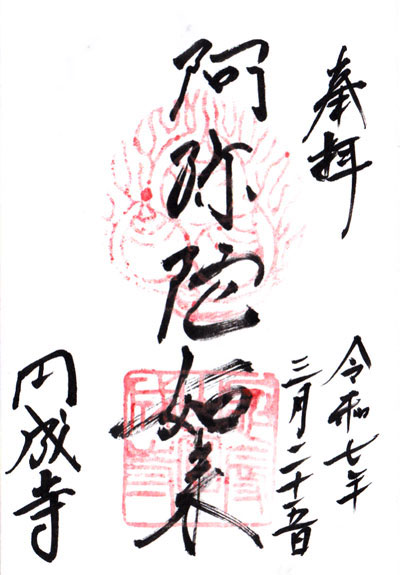 奉拝
令和七年
三月二十五日
阿弥陀如来
円成寺